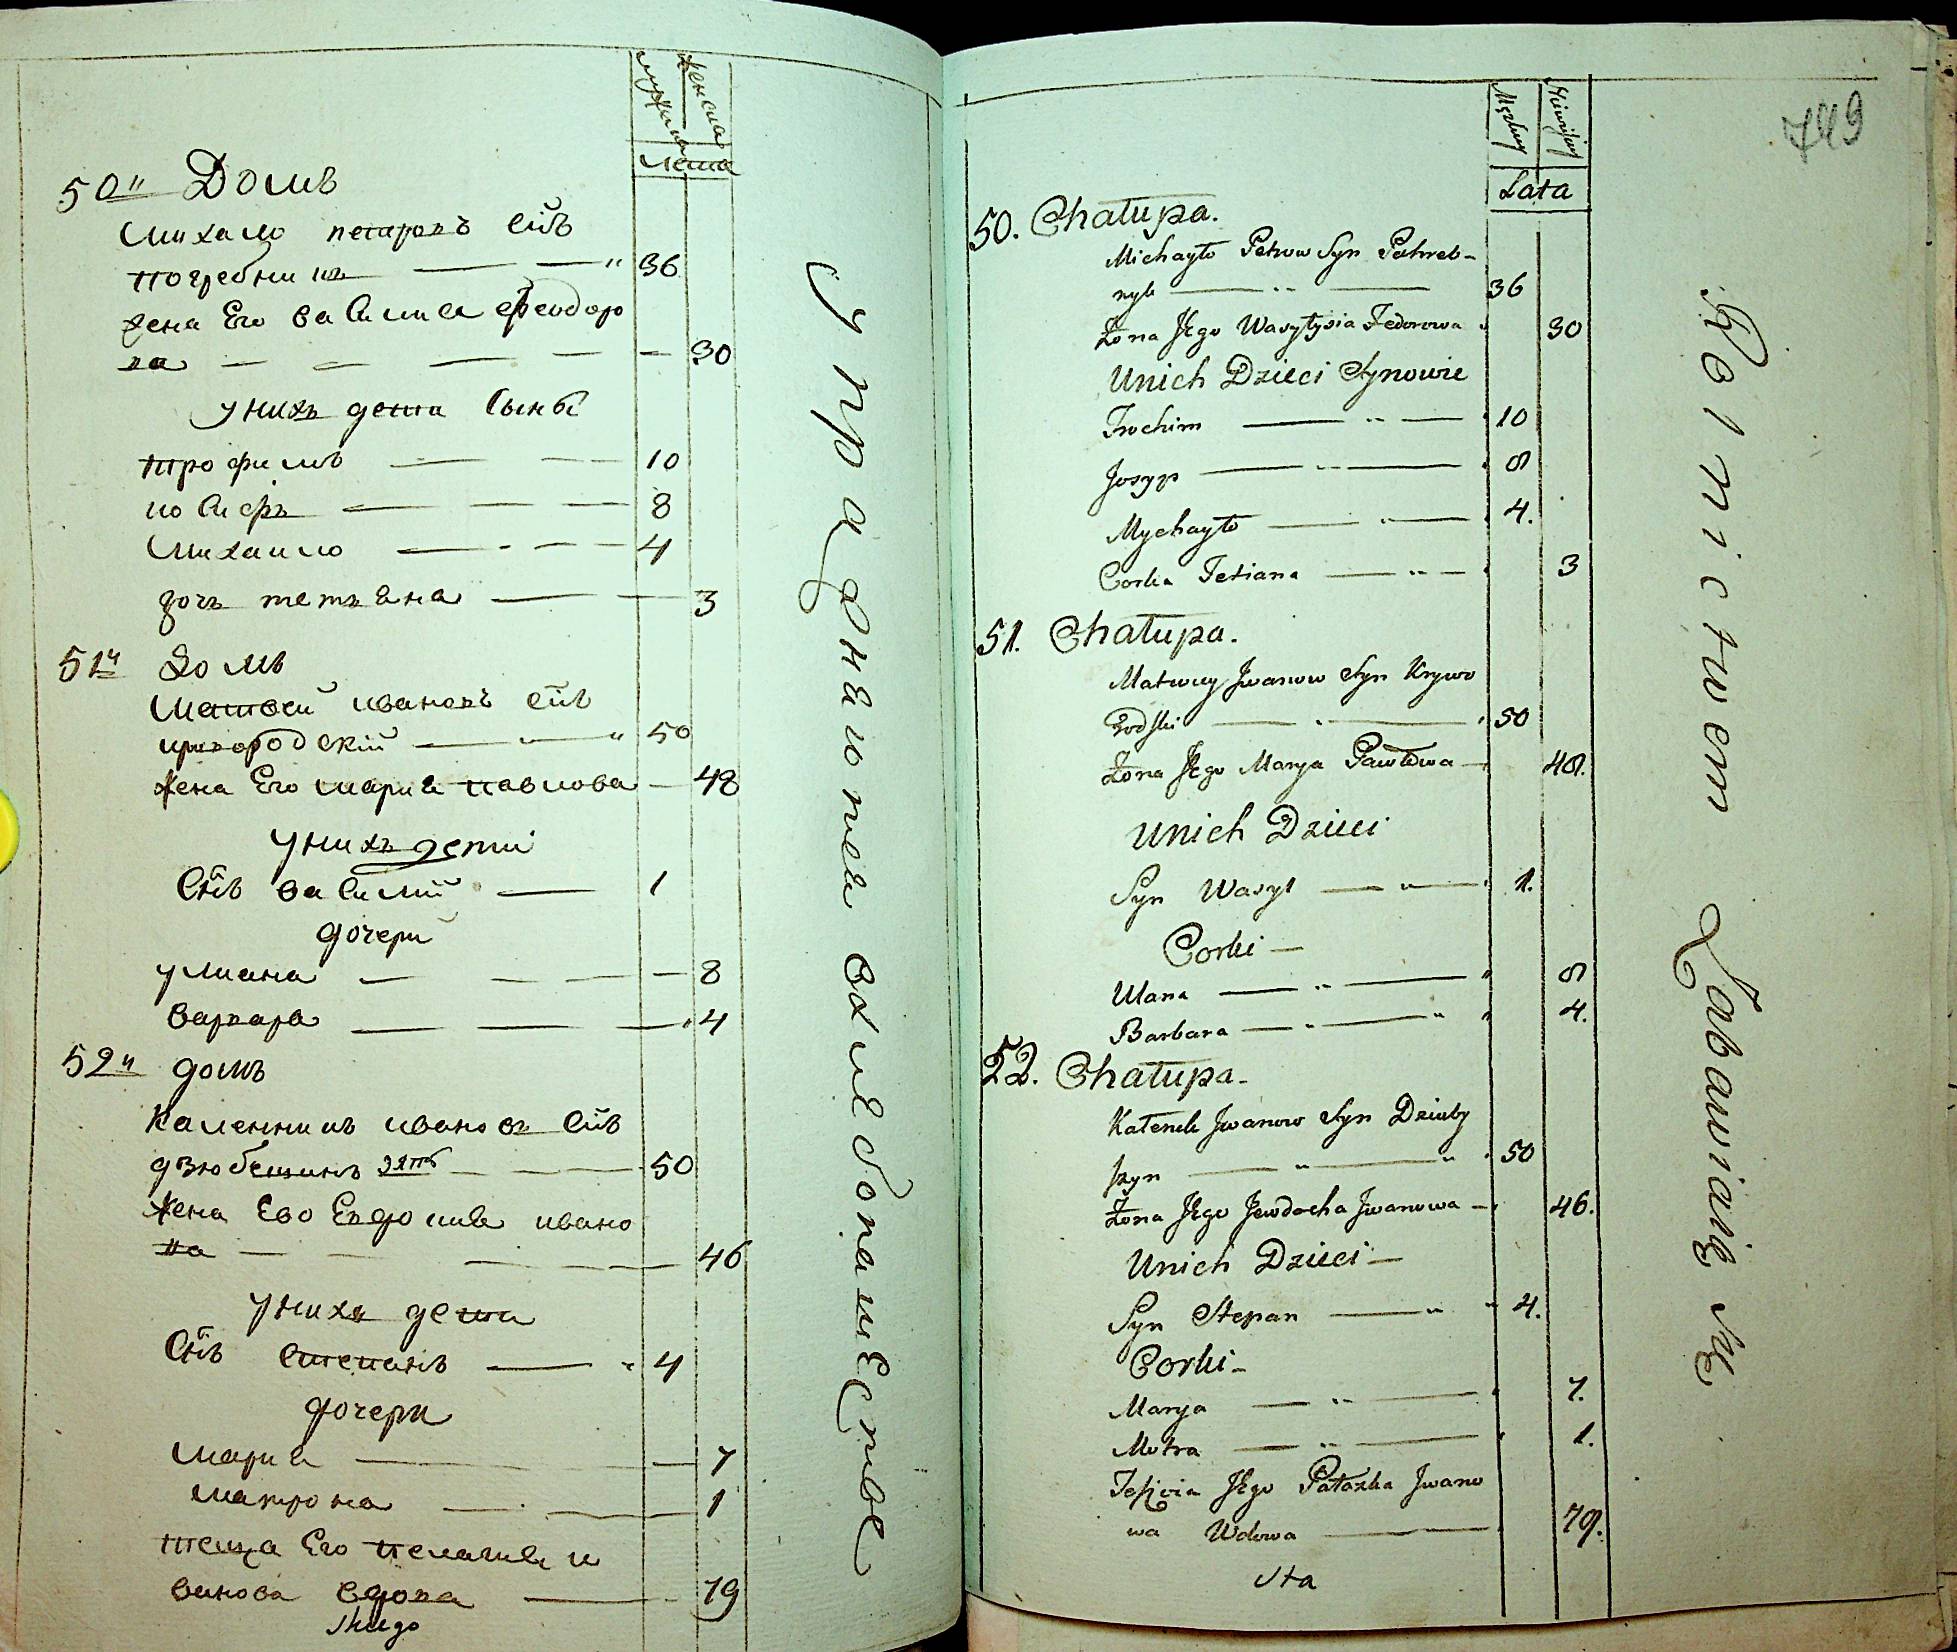 мужеска
женска
лета
50" Домъ
Михало петровъ сн҃ъ
погребникъ — — " 36
жена Его василиса феодоро
ва — — — — — 30
у нихъ дети сыны
трофимъ — — 10
иосифъ — — — 8
Михаило — - — — 4
дочь тетьяна — — 3
51" домъ
Матвей ивановъ сн҃ъ
кривородский — " — " 50
жена Его мариа павлова — 48
у нихъ дети
сн҃ъ василий — 1
дочери
улиана — — — — 8
варвара — — — " 4
52" домъ
Каленникъ ивановъ сн҃ъ
дзюбешинъ зять — — — 50
жена Его Евдокиа ивано
ва — — — — 46
у нихъ дети
сн҃ъ степанъ — " 4
дочери
мариа — — 7
матрона — . — 1
теща Его пелагиа и
ванова вдова — — 79
упражняются въ хлебопашестве
749
Męzkiey
Żeńskiey
Lata
50. Chałupa.
Michayło Petrow Syn Pohreb-
nyk — " — 36
Żona Jego Wasylysia Fedorowa " 30
Unich Dzieci Synowie
Trochim — " — " 10
Josyp — " — " 8
Mychayło — " — " 4.
Corka Tetiana — " — " 3
51. Chałupa.
Matwiy Jwanow Syn Krywo
rodski — " — " 50
Żona Jego Marya Pawłowa — 48.
Unich Dzieci
Syn Wasyl — " — " 1.
Corki —
Ulana — " — " 8
Barbara — " — " " 4.
52. Chałupa.
Kałenik Jwanow Syn Dziuby
szyn — " — " " 50
Żona Jego Jewdocha Jwanowa — " 46.
Unich Dzieci —
Syn Stepan — " " 4.
Corki —
Marya — " — " 7.
Motra — " — " 1.
Teścia Jego Pałazka Jwano
wa Wdowa — " 79.
Sta
Rolnictwem Zabawiaię się